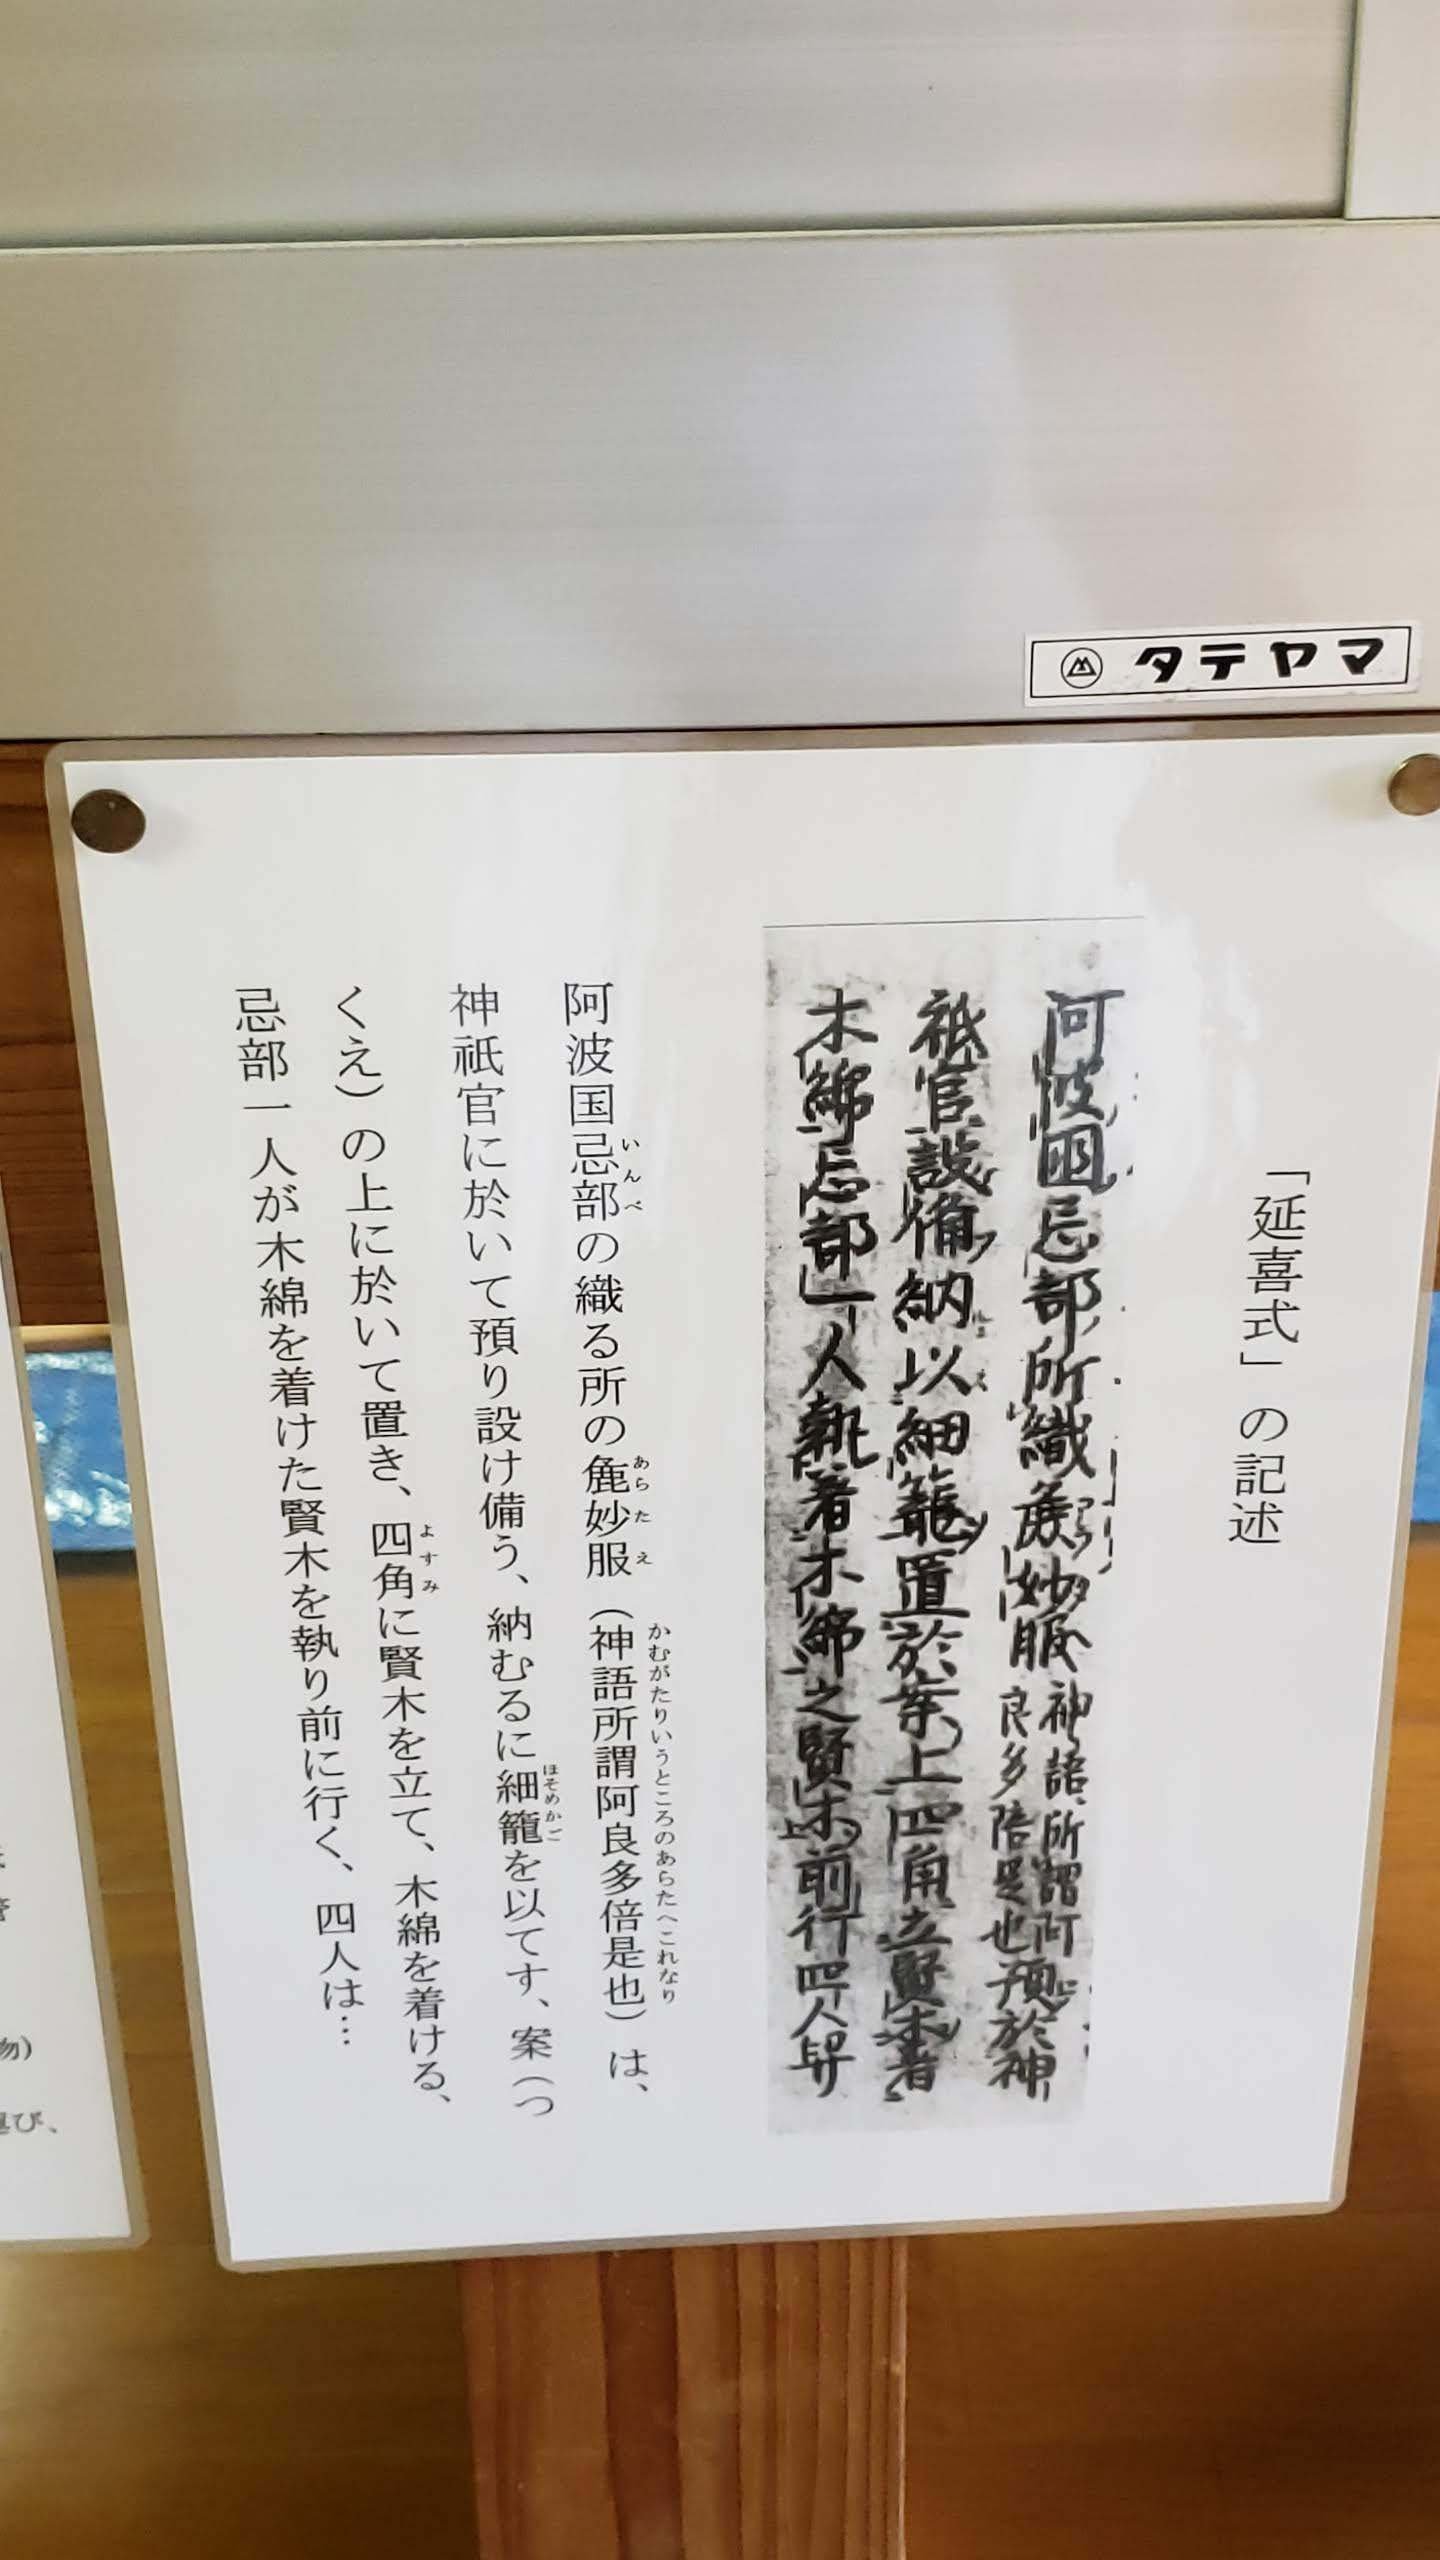 タテヤマ
「延喜式」の記述
阿波国忌部所織麁妙服神語所謂阿良多倍是也預於神
祇官設備納以細籠置於案上四角立賢木著
木綿忌部一人執著木綿之賢木前行四人舁
阿波国忌部の織る所の麁妙服（神語所謂阿良多倍是也）は、
いんべ
あらたえ
かむがたりいうところのあらたへこれなり
神祇官に於いて預り設け備う、納むるに細籠を以てす、案（つ
ほそめかご
くえ）の上に於いて置き、四角に賢木を立て、木綿を着ける、
よすみ
忌部一人が木綿を着けた賢木を執り前に行く、四人は…
物）
び、